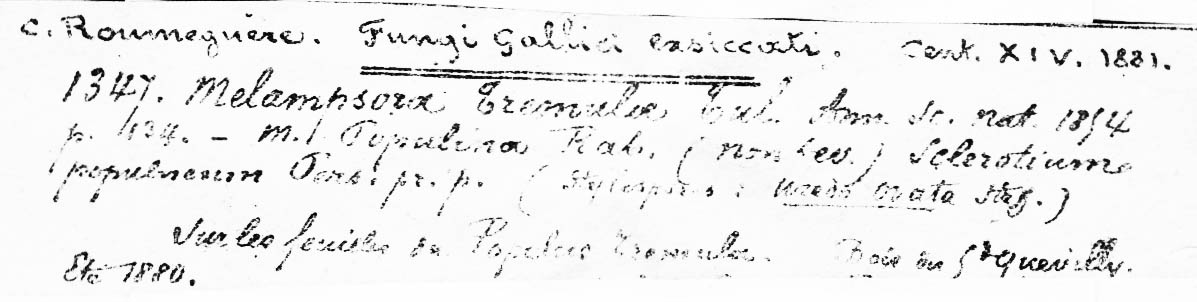 C. Roumeguère. Fungi Gallici exsiccati. Cent. XIV. 1881.
1347. Melampsora Tremulae Tul. Ann. Sc. nat. 1854
p. - M. Populina Rab. (non Lev.) Sclerotium
populneum Pers. pr. p. (Stylospores : Uredo ovata Str.)
Sur les feuilles du Populus tremula. Bois du Gd Quevilly.
Eté 1880.